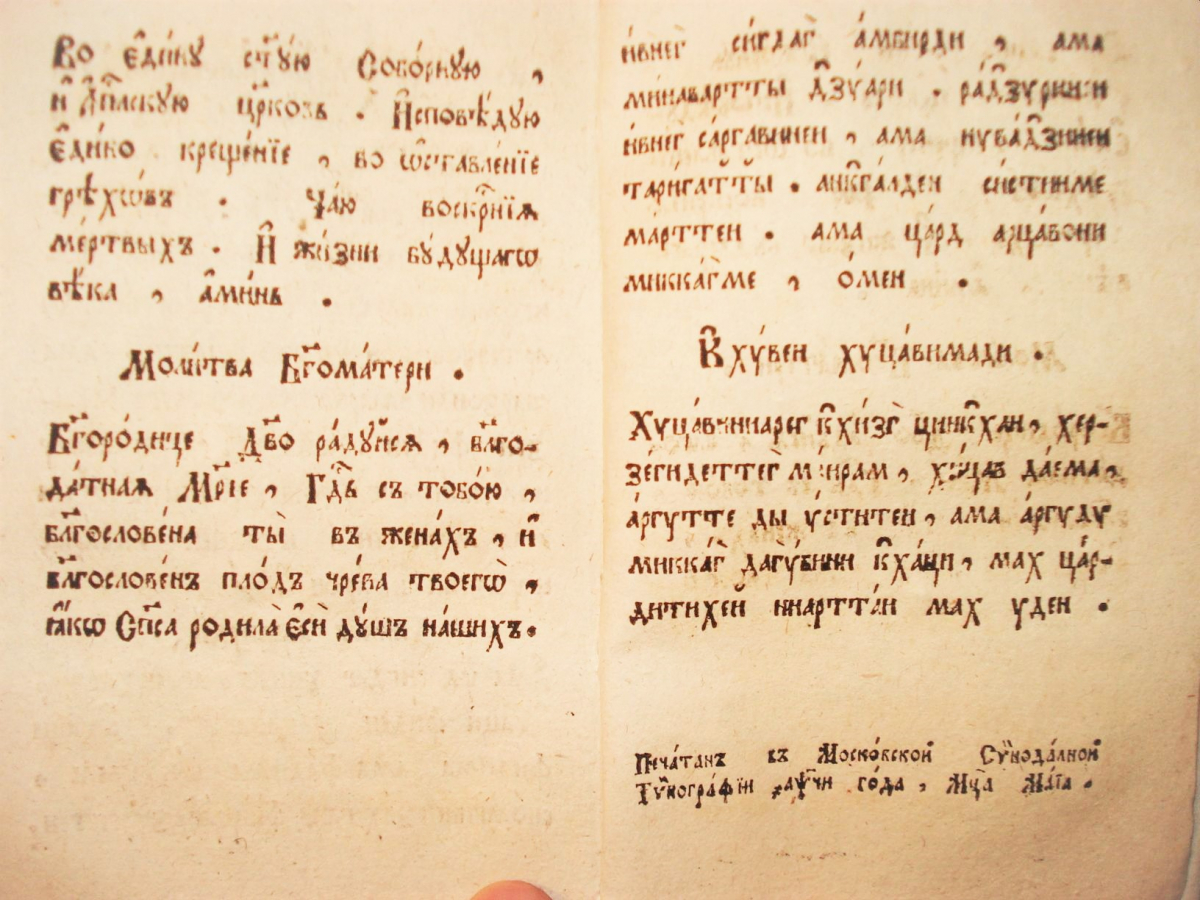 Во є҆ди́ну ст҃ꙋ́ю Собо́рнꙋю ,
и҆ А҆пⷭ҇лскꙋю цр҃ковь . И҆сповѣ́дꙋю
є҆ди́но креще́нїе , во ѡ҆ставле́нїе
грѣхѡ́въ . Ча́ю воскрⷭ҇нїѧ
ме́ртвыхъ . И҆ жи́зни бꙋ́дꙋщагѡ
вѣ́ка , а҆ми́нь .
Моли́тва Бг҃ома́тери .
Бг҃оро́дице Дв҃о ра́дꙋйсѧ , бл҃го-
да́тнаѧ Мр҃їе , Гдⷭ҇ь съ тобо́ю ,
бл҃гослове́на ты̀ въ жена́хъ , и҆
бл҃гослове́нъ пло́дъ чре́ва твоегѡ̀ ,
ꙗ҆́кѡ Сп҃са родила̀ є҆сѝ дꙋ́шъ на́шихъ .
и́внег си́гдаг а́мбирди , ама
мина́вартты дзꙋ́ари . ра́дзꙋринен
и́внег са́ргавинен , ама нꙋва́дзинен
тари́гатты . анкга́лден си́стниме
ма́рттен . ама ца́рд арца́вони
микка́гме , о́мен .
Кхꙋ́вен хꙋца́вимади .
Хꙋца́внинарег кхи́зг цинкхан , хер-
зе́гидеттег ма́ирам , хꙋ́цав да́ема ,
а́ргꙋтте ды ꙋ́ститен , ама а́ргꙋдꙋ
микка́г дагꙋ́бинни кха́ци , мах ца́р-
дитихей ниартта́н мах ꙋден .
Печа́танъ въ Моско́вской Сѷнода́лной
Тѷпогра́фїи ҂аѱ҃чи го́да , Мцⷭ҇а Ма́їа .